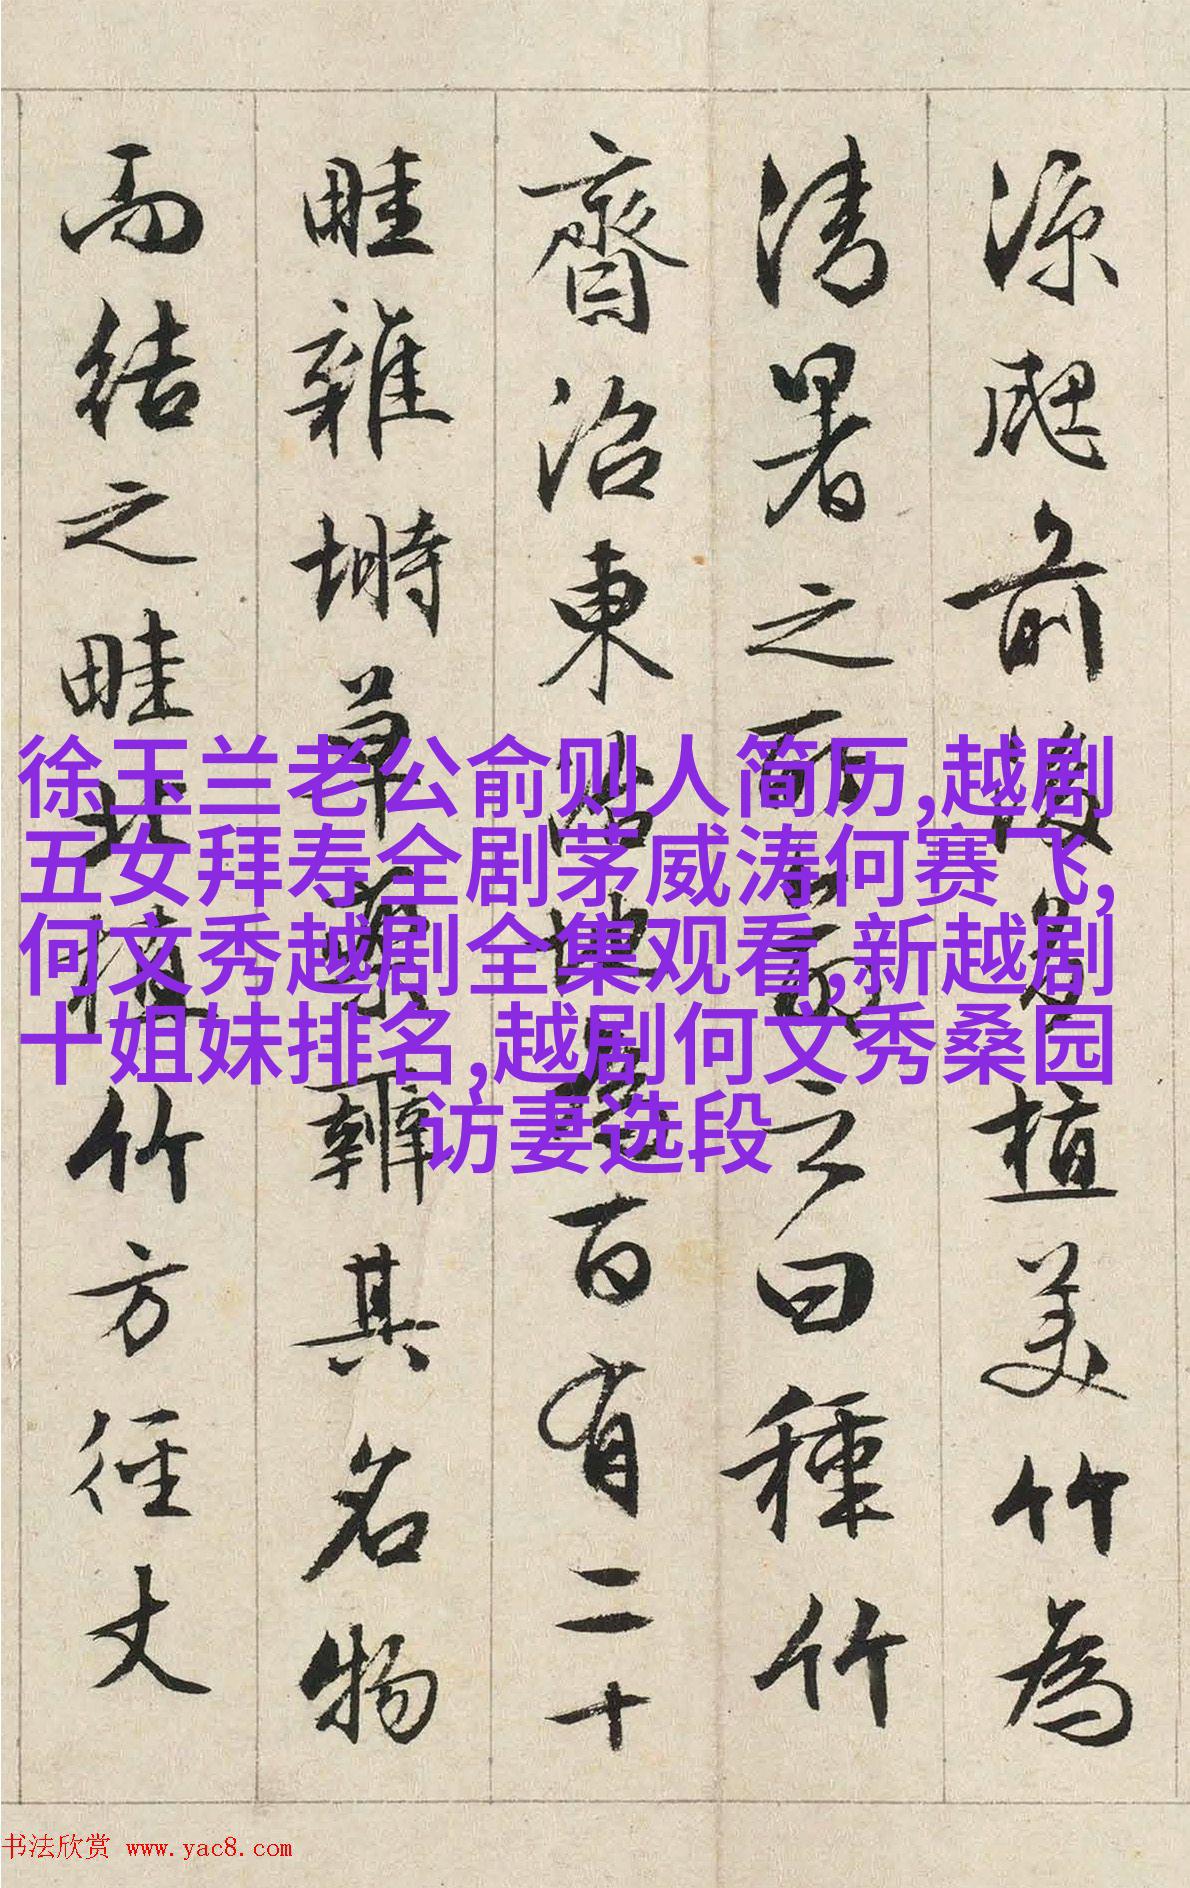 涼颸前後多植美竹為
清暑之所命之曰種竹
齋沼東治地為百有二十
畦雜塒草藥辨其名物
而結之畦北植竹方徑丈
徐玉兰老公俞则人简历,越剧
五女拜寿全剧茅威涛何赛飞,
何文秀越剧全集观看,新越剧
十姐妹排名,越剧何文秀桑园
访妻选段
书法欣赏 www.yac8.com